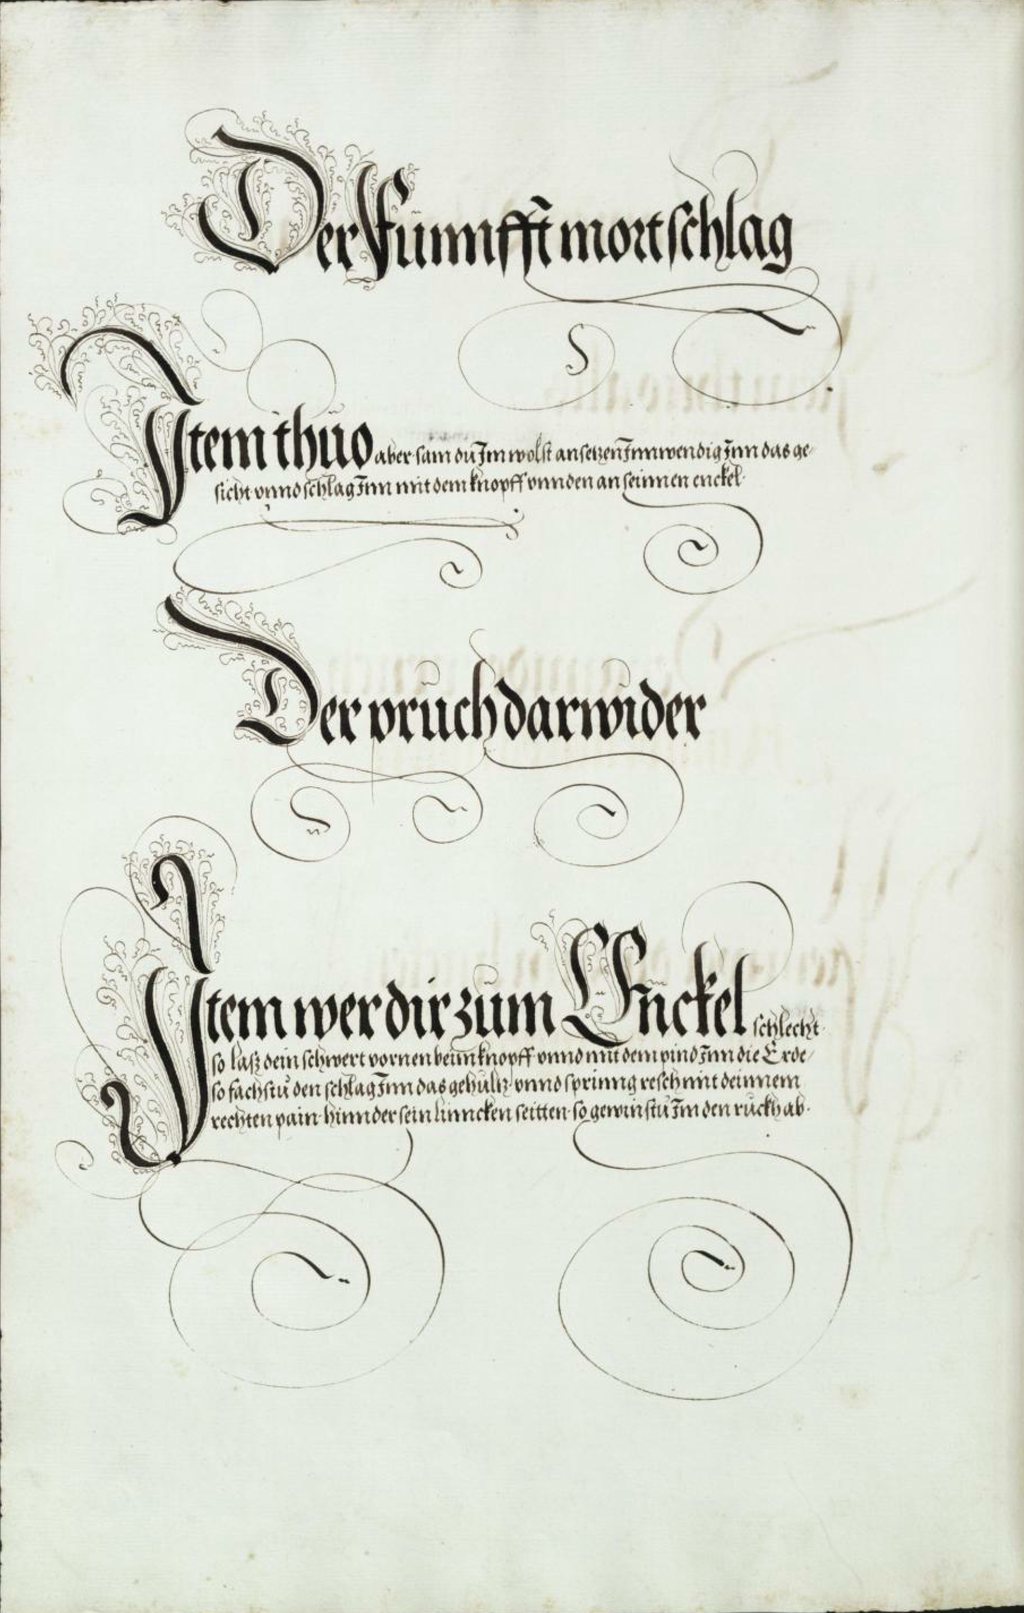 Der Fünnfft mortschlag
Item thüo aber sam du Im wolst ansetzen Innwendig Inn das ge/
sicht vnnd schlag Inn mit dem knopff vnnden an seinnen enckel·
Der pruch darwider
Item wer dir zum Enckel schlecht·
so lasz dein schwert vornen beim knopff vnnd mit dem pind Inn die Erde/
so fachstu den schlag Inn das gehültz vnnd sprinng resch mit deinnem
rechten pain hinnder sein linncken seitten· so gewinstu Im den ruckh ab·